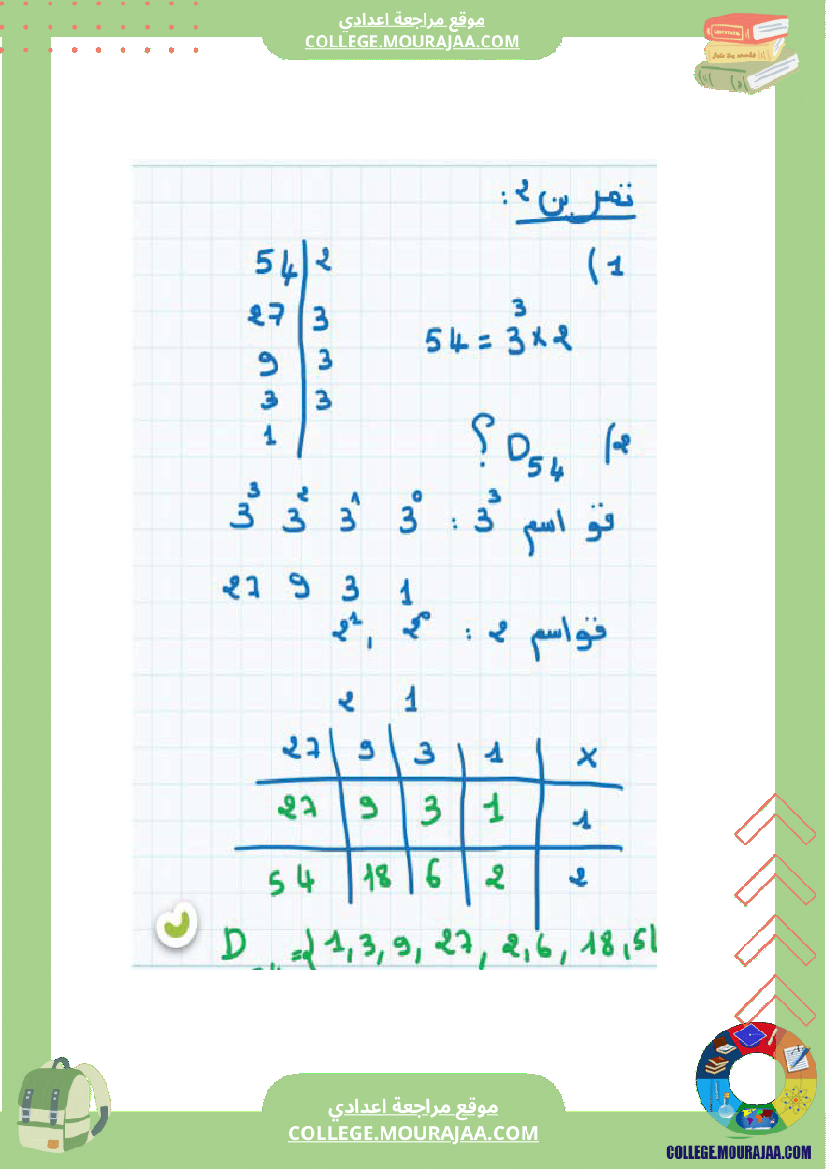 موقع مراجعة اعدادي
COLLEGE.MOURAJAA.COM
تمرين 2 :
1)
54 | 2
27 | 3
9 | 3
3 | 3
1 |
54 = 3³ × 2
2) D₅₄ ؟
قواسم 3³ : 3⁰ 3¹ 3² 3³
1 3 9 27
قواسم 2 : 2⁰ , 2¹
1 2
× | 1 | 3 | 9 | 27
1 | 1 | 3 | 9 | 27
2 | 2 | 6 | 18 | 54
D₅₄ = { 1 , 3 , 9 , 27 , 2 , 6 , 18 , 54
موقع مراجعة اعدادي
COLLEGE.MOURAJAA.COM
COLLEGE.MOURAJAA.COM